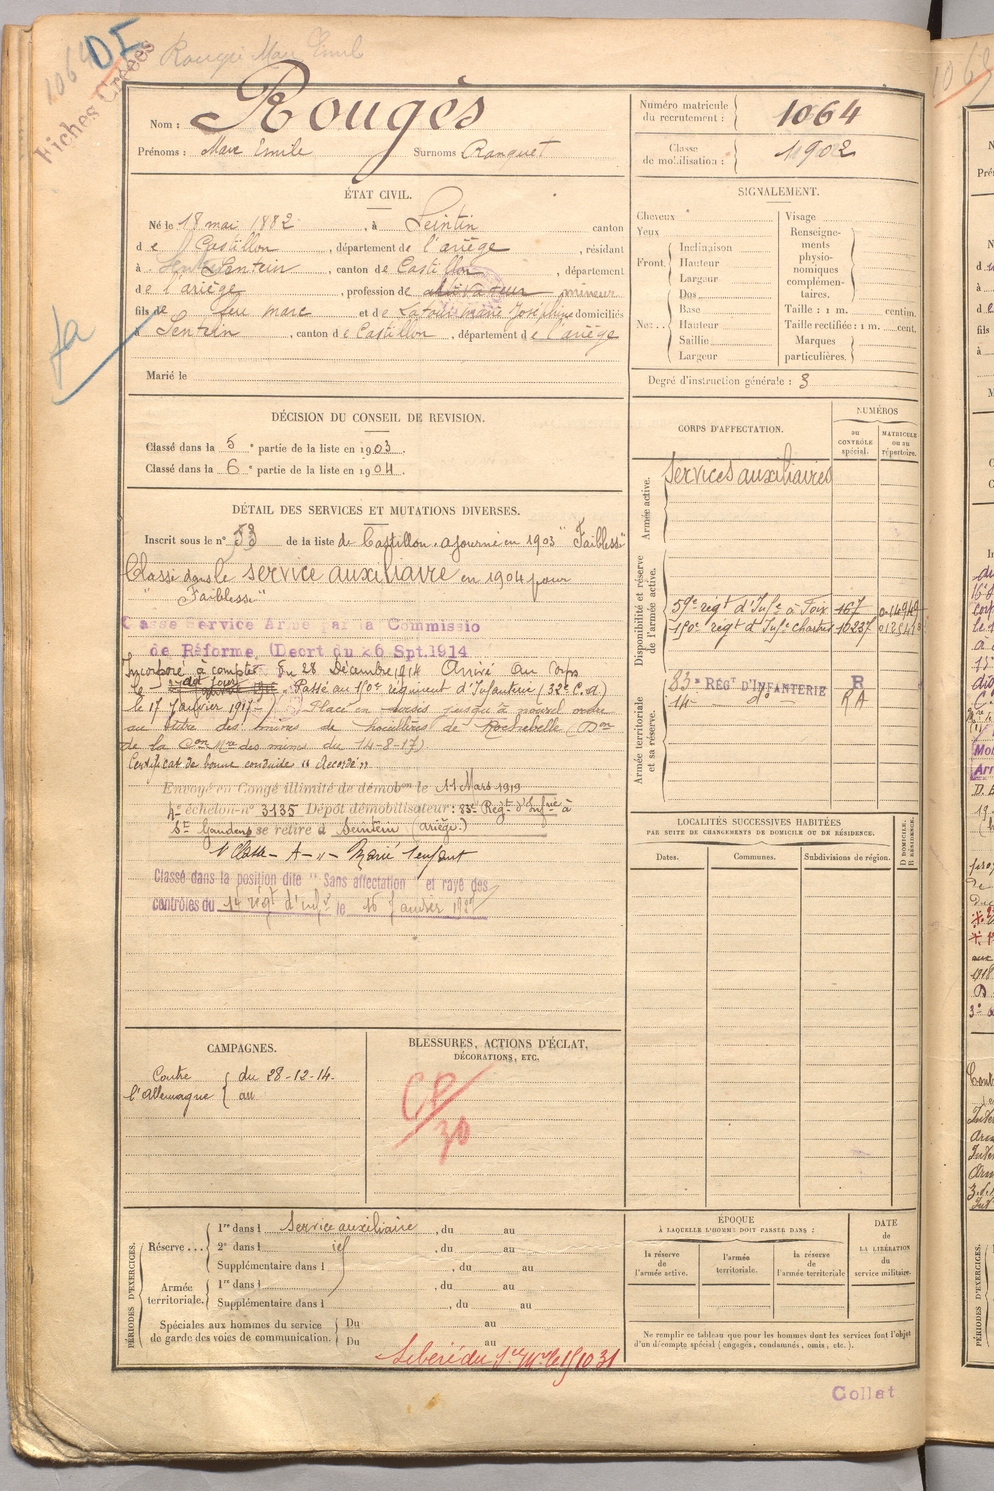 1064 DI Rougès Marc Emile
Fiches Créées
fa
Nom : Rougès
Prénoms : Marc Emile Surnoms Ranquet
Numéro matricule du recrutement : 1064
Classe de mobilisation : 1902
ÉTAT CIVIL.
Né le 18 mai 1882, à Seintin canton
de Castillon, département de l'ariège, résidant
à Sentein, canton de Castillon, département
de l'ariège, profession de cultivateur mineur
fils de feu Marc et de Lafaille Marie Joséphine domiciliés
à Sentein, canton de Castillon, département de l'ariège
Marié le
SIGNALEMENT.
Cheveux
Yeux
Front. Inclinaison
Hauteur
Largeur
Nez.. Dos
Base
Hauteur
Saillie
Largeur
Visage
Renseignements physionomiques complémentaires.
Taille : 1 m. centim.
Taille rectifiée : 1 m. cent.
Marques particulières.
Degré d'instruction générale : 3
DÉCISION DU CONSEIL DE REVISION.
Classé dans la 5e partie de la liste en 1903.
Classé dans la 6e partie de la liste en 1904.
DÉTAIL DES SERVICES ET MUTATIONS DIVERSES.
Inscrit sous le n° 53 de la liste de Castillon. ajourné en 1903 "Faiblesse"
Classé dans le service auxiliaire en 1904 pour
"Faiblesse"
Classé Service Armé par la Commissio
de Réforme, (Decrt du 26 Spt.1914
Incorporé à compter du 28 Décembre 1914 Arrivé au Corps
le dit jour. Passé au 150e régiment d'Infanterie (32e C.A.)
le 17 Janvier 1917. Placé en sursis jusqu'à nouvel ordre
au titre des mines de houillères de Rochebelle (Don
de la Con Mre des mines du 14-8-17)
Certificat de bonne conduite "Accordé"
Envoyé en Congé illimité de démobon le 11 Mars 1919
4e échelon n° 3135 Dépôt démobilisateur : 83e Régt d'Infrie à
St Gaudens se retire à Seintein (ariège.)
Classe - A - Marié 1 enfant
Classé dans la position dite "Sans affectation" et rayé des
contrôles du 14 régt d'infie le 16 Janvier 1927
CORPS D'AFFECTATION.
NUMÉROS
au CONTRÔLE spécial.
MATRICULE ou au répertoire.
Armée active.
Services auxiliaires
Disponibilité et réserve de l'armée active.
59e régt d'Infie à Foix 167 014949
150e régt d'Infie Chartres 16237
Armée territoriale et sa réserve.
83e RÉGt D'INFANTERIE R
14 - do - RA
LOCALITÉS SUCCESSIVES HABITÉES
PAR SUITE DE CHANGEMENTS DE DOMICILE OU DE RÉSIDENCE.
Dates. Communes. Subdivisions de région. D DOMICILE. R RÉSIDENCE.
CAMPAGNES.
Contre l'Allemagne { du 28-12-14.
au
BLESSURES, ACTIONS D'ÉCLAT, DÉCORATIONS, ETC.
CP/30
PÉRIODES D'EXERCICES.
Réserve... 1re dans l Service auxiliaire, du au
2e dans l, du au
Supplémentaire dans l, du au
Armée territoriale. 1re dans l, du au
Supplémentaire dans l, du au
Spéciales aux hommes du service de garde des voies de communication. Du au
Du au
Libéré du Sce Mre le 15/10 31
ÉPOQUE
À LAQUELLE L'HOMME DOIT PASSER DANS :
la réserve de l'armée active.
l'armée territoriale.
la réserve de l'armée territoriale
DATE de LA LIBÉRATION du service militaire.
Ne remplir ce tableau que pour les hommes dont les services font l'objet
d'un décompte spécial (engagés, condamnés, omis, etc.).
Collat